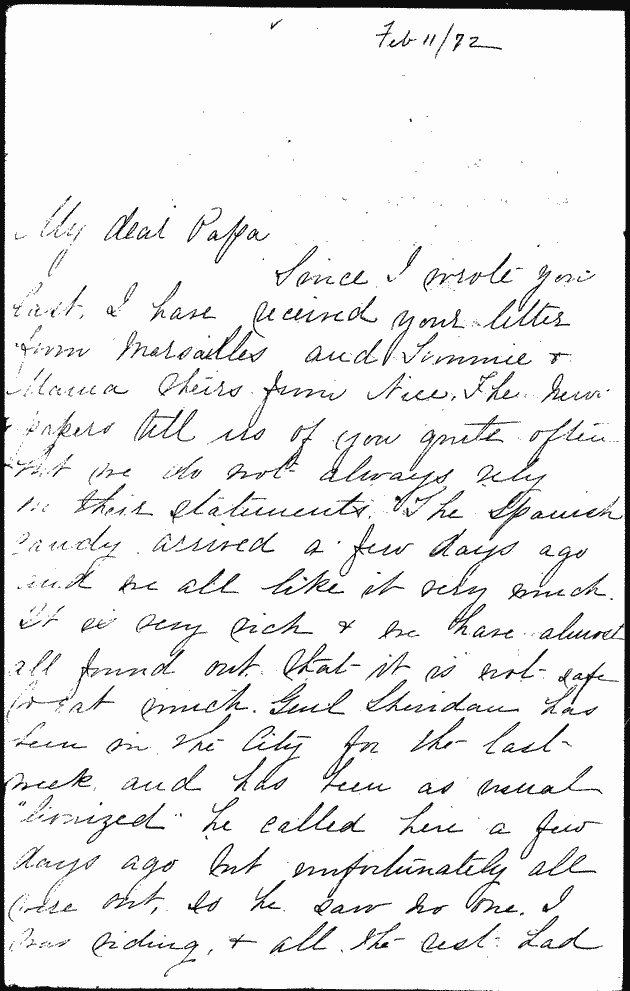 Feb 11/72
My dear Papa
Since I wrote you
last, I have received your letter
from Marsailles and Tommie &
Mama theirs from Nice. The news
papers tell us of you quite often
but we do not always rely
on their statements. The Spanish
candy arrived a few days ago
and we all like it very much.
It is very rich & we have almost
all found out that it is not safe
to eat much. Genl Sheridan has
been in the City for the last
week and has been as usual
"lionized" he called here a few
days ago but unfortunately all
were out, so he saw no one. I
was riding, & all the rest had